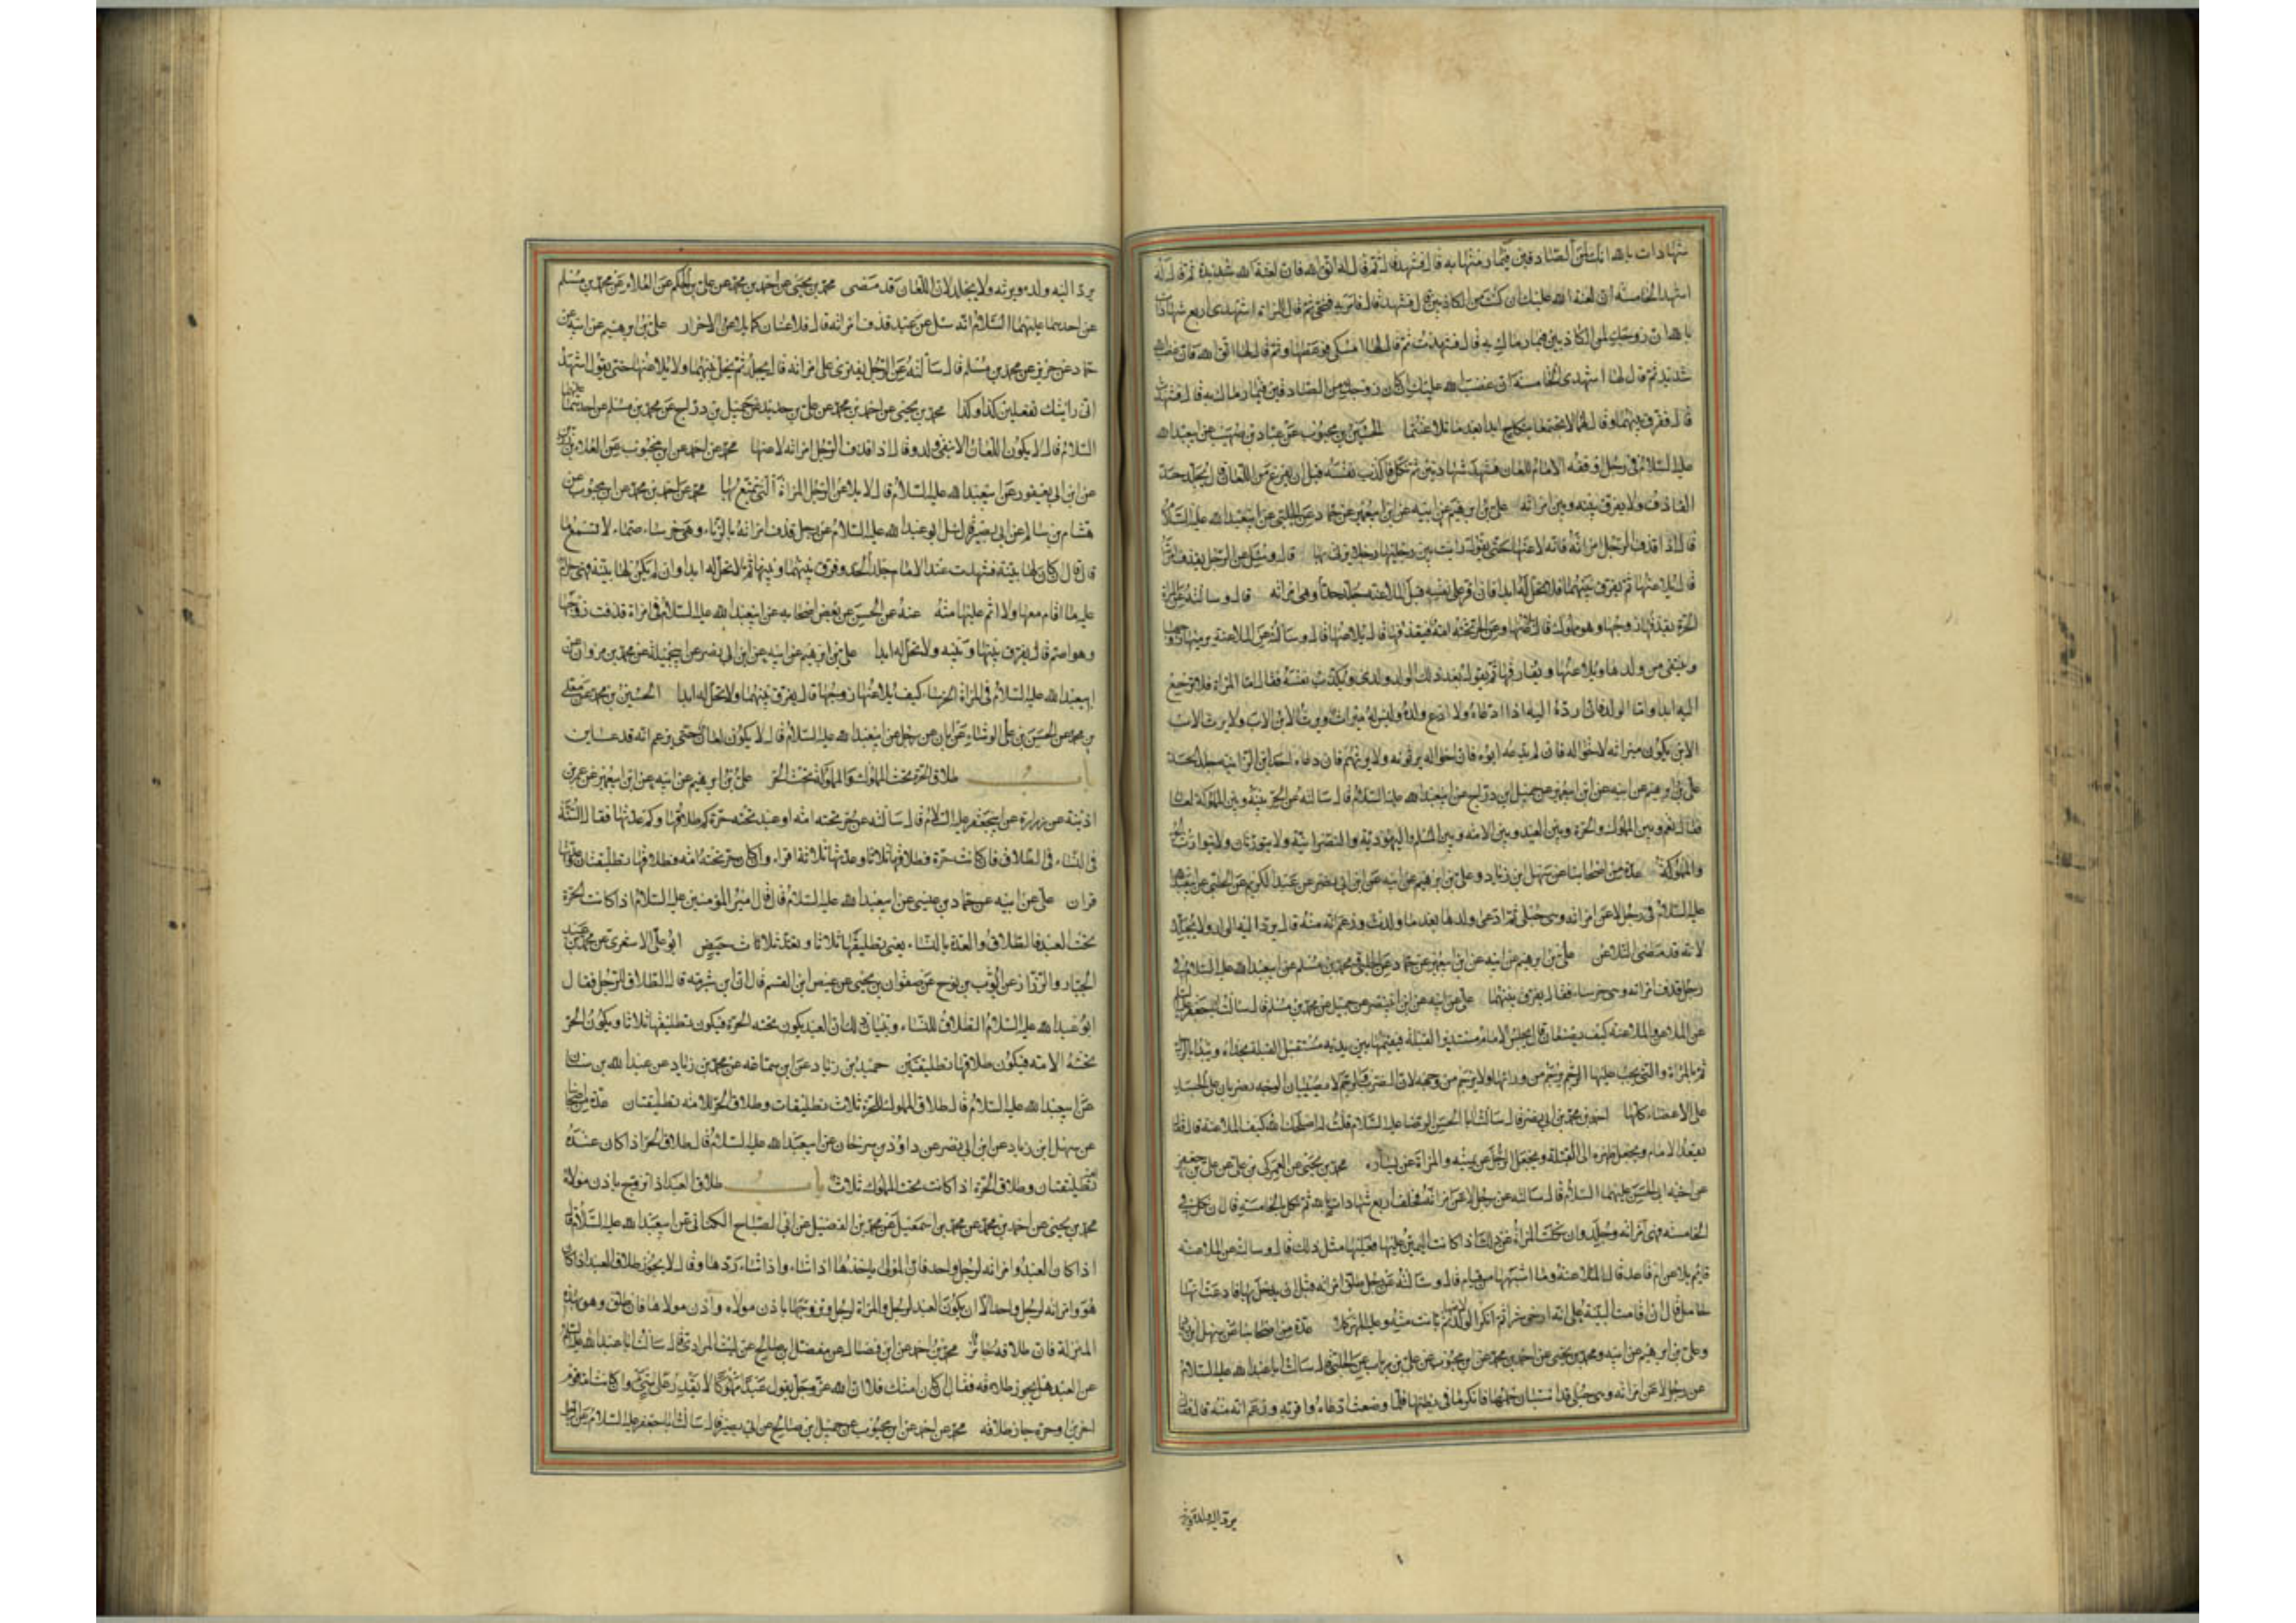 شهادات بالله انك لمن الصادقين فيما رميتها به قال فشهد قال ثم قال له اتق الله فان لعنة الله شديدة ثم قال له
اشهد الخامسة ان لعنة الله عليك ان كنت من الكاذبين قال فشهد قال فامر به فنحى ثم قال للمراة اشهدى اربع شهادات
بالله ان زوجك لمن الكاذبين فيما رماك به قال فشهدت ثم قال لها امسكى فوعظها وثم قال لها اتق الله فان غضب الله
شديد ثم قال لها اشهدى الخامسة ان غضب الله عليك ان كان زوجك من الصادقين فيما رماك به قال فشهدت
قال ففرق بينهما وقال لهما لا تجتمعا بنكاح ابدا بعد ما تلاعنتما الحسن بن محبوب عن عباد بن صهيب عن ابيعبدالله
عليه السلام فى رجل وقفه الامام للعان فشهد شهادتين ثم نكل فاكذب نفسه قبل ان يفرغ من اللعان قال يجلد حد
القاذف ولا يفرق بينه وبين امراته على بن ابرهيم عن ابيه عن ابن ابيعمير عن حماد عن الحلبى عن ابيعبدالله عليه السلام
قال اذا قذف الرجل امراته فانه لا يلاعنها حتى يقول رايت بين رجليها رجلا يزنى بها قال وسئل عن الرجل يقذف امراته
قال يلاعنها ثم يفرق بينهما فلا تحل له ابدا فان اقر على نفسه قبل الملاعنة جلد حدا وهى امراته قال وسالته عن المراة
الحرة يقذفها زوجها وهو مملوك قال يلاعنها وعن الحر تحته امة فيقذفها قال يلاعنها قال وسالته عن الملاعنة يرميها زوجها
وينتفى من ولدها ويلاعنها ويفارقها ثم يقول بعد ذلك الولد ولدى ويكذب نفسه فقال اما المراة فلا ترجع
اليه ابدا واما الولد فانى ارده اليه اذا ادعاه ولا ادع ولده وليس له ميراث ويرث الابن الاب ولا يرث الاب
الابن يكون ميراثه لاخواله فان لم يدعه ابوه فان اخواله يرثونه ولا يرثهم فان دعاه احد ابن الزانية جلد الحد
على بن ابرهيم عن ابيه عن ابن ابيعمير عن جميل ابن دراج عن ابيعبدالله عليه السلام قال سالته عن الحر بينه وبين المملوكة لعان
فقال نعم وبين المملوك والحرة وبين العبد وبين الامة وبين المسلم واليهودية والنصرانية ولا يتوارثان ولا يتوارث الحر
والمملوكة عدة من اصحابنا عن سهل ابن زياد وعلى بن ابرهيم عن ابيه عن ابن ابى نصر عن عبد الكريم عن الحلبى عن ابيعبدالله
عليه السلام فى رجل لاعن امراته وهى حبلى ثم ادعى ولدها بعد ما ولدت وزعم انه منه قال يرد اليه الولد ولا يجلد
لانه قد مضى التلاعن على بن ابرهيم عن ابيه عن ابن ابيعمير عن حماد عن الحلبى ومحمد بن مسلم عن ابيعبدالله عليه السلام فى
رجل قذف امراته وهى خرساء فقال يفرق بينهما على عن ابيه عن ابن ابينصر عن جميل عن محمد بن مسلم قال سالت اباجعفر عليه السلام
عن الملاعن والملاعنة كيف يصنعان قال يجلس الامام مستدبر القبلة فيقيمهما بين يديه مستقبل القبلة بحذاه ويبدا بالرجل
ثم بالمراة والتى يجب عليها الرجم ترجم من ورائها ولا ترجم من وجهها لان الضرب والرجم لا يصيبان الوجه يضربان على الجسد
على الاعضاء كلها احمد بن محمد بن ابى نصر قال سالت ابا الحسن الرضا عليه السلام قلت له اصلحك الله كيف الملاعنة قال فقال
يقعد الامام ويجعل ظهره الى القبلة ويجعل الرجل عن يمينه والمراة عن يساره محمد بن يحيى عن العمركى بن على عن على بن جعفر
عن اخيه ابى الحسن عليهما السلام قال سالته عن رجل لاعن امراته فحلف اربع شهادات بالله ثم نكل بالخامسة قال ان نكل فى
الخامسة فهى امراته وجلد وان نكلت المراة عن ذلك اذا كانت اليمين عليها فعليها مثل ذلك قال وسالته عن الملاعنة
قائم يلاعن ام قاعد قال الملاعنة وما اشبهها من قيام قال وسالته عن رجل طلق امراته قبل ان يدخل بها فادعت انها
حامل قال ان اقامت البينة على انه ارخى سترا ثم انكر الولد لاعنها ثم بانت منه وعليه المهر كملا عدة من اصحابنا عن سهل ابن زياد
وعلى بن ابرهيم عن ابيه ومحمد بن يحيى عن احمد بن محمد عن ابن محبوب عن على بن رياب عن الحلبى قال سالت اباعبدالله عليه السلام
عن رجل لاعن امراته وهى حبلى قد استبان حملها فانكر ما فى بطنها فلما وضعت ادعاه واقر به وزعم انه منه قال فقال
يرد اليه ولده ويرثه
يرد اليه ولده ويرثه ولا يجلد لان اللعان قد مضى محمد بن يحيى عن احمد بن محمد عن على بن الحكم عن العلاء عن محمد بن مسلم
عن احدهما عليهما السلام انه سئل عن عبد قذف امراته قال فلاعنان كما يلاعن الاحرار على بن ابرهيم عن ابيه عن
حماد عن حريز عن محمد بن مسلم قال سالته عن الرجل يفترى على امراته قال يجلد ثم يخلى بينهما ولا يلاعنها حتى يقول اشهد
انى رايتك تفعلين كذا وكذا محمد بن يحيى عن احمد بن محمد عن على بن حديد عن جميل بن دراج عن محمد بن مسلم عن احدهما عليهما
السلام قال لا يكون اللعان الا بنفى ولد وقال اذا قذف الرجل امراته لاعنها محمد عن احمد عن ابن محبوب عن العلاء بن رزين
عن ابن ابى يعفور عن ابيعبدالله عليه السلام قال لا يلاعن الرجل المراة التى يتمتع بها محمد عن احمد بن محمد عن ابن محبوب عن
هشام بن سالم عن ابى بصير قال سئل ابو عبدالله عليه السلام عن رجل قذف امراته بالزناء وهى خرساء صماء لا تسمع ما
قال قال ان كان لها بينة فشهدت عند الامام جلد الحد وفرق بينهما وبينها ثم لا تحل له ابدا وان لم يكن لها بينة فهى حرام
عليه ما اقام معها ولا اثم عليها منه عنه عن الحسن عن بعض اصحابه عن ابيعبدالله عليه السلام فى امراة قذفت زوجها
وهو اصم قال يفرق بينها وبينه ولا تحل له ابدا على بن ابرهيم عن ابيه عن ابن ابى نصر عن ابيجميلة عن محمد بن مروان عن
ابيعبدالله عليه السلام فى المراة الخرساء كيف يلاعنها زوجها قال يفرق بينهما ولا تحل له ابدا الحسين بن محمد عن معلى
بن محمد عن الحسن بن على الوشاء عن ابان عن رجل عن ابيعبدالله عليه السلام قال لا يكون لعان حتى يزعم انه قد عاين
باب طلاق الحرة تحت المملوك والمملوكة تحت الحر على بن ابرهيم عن ابيه عن ابن ابيعمير عن عمر بن
اذينة عن زرارة عن ابيجعفر عليه السلام قال سالته عن حر تحته امة او عبد تحته حرة كم طلاقها وكم عدتها فقال السنة
فى النساء فى الطلاق فان كانت حرة فطلاقها ثلاثا وعدتها ثلاثة اقراء وان كان حر تحته امة فطلاقها تطليقتان وعدتها
قرءان على عن ابيه عن حماد بن عيسى عن ابيعبدالله عليه السلام قال قال امير المؤمنين عليه السلام اذا كانت الحرة
تحت العبد فالطلاق والعدة بالنساء يعنى تطليقها ثلاثا وتعتد ثلاثا ث حيض ابو على الاشعرى عن محمد بن عبد
الجبار والرزاز عن ايوب بن نوح عن صفوان بن يحيى عن عيص ابن القسم قال ان ابن شبرمة قال الطلاق للرجل فقال
ابو عبدالله عليه السلام الطلاق للنساء وتبيان ذلك ان العبد يكون تحته الحرة فيكون تطليقها ثلاثا ويكون الحر
تحته الامة فيكون طلاقها تطليقتين حميد بن زياد عن ابن سماعه عن محمد بن زياد عن عبدالله بن سنان
عن ابيعبدالله عليه السلام قال طلاق المملوك للحرة ثلاث تطليقات وطلاق الحر للامة تطليقتان عدة من اصحابنا
عن سهل ابن زياد عن ابن ابى نصر عن داوذ بن سرحان عن ابيعبدالله عليه السلام قال طلاق الحر اذا كان عنده
امة تطليقتان وطلاق الحرة اذا كانت تحت المملوك ثلاث باب طلاق العبد اذا تزوج باذن مولاه
محمد بن يحيى عن احمد بن محمد عن محمد بن اسمعيل عن محمد بن الفضيل عن ابى الصباح الكنانى عن ابيعبدالله عليه السلام قال
اذا كان العبد وامراته لرجل واحد فان المولى ياخذها اذا شاء واذا شاء ردها وقال لا يجوز طلاق العبد اذا كان
هو وامراته لرجل واحد الا ان يكون العبد لرجل والمراة لرجل وتزوجها باذن مولاه واذن مولاها فان طلق وهو بهذه
المنزلة فان طلاقه جائز محمد بن احمد عن ابن فضال عن مفضل بن صالح عن ليث المرادى قال سالت اباعبدالله عليه السلام
عن العبد هل يجوز طلاقه فقال ان كان امتك فلا ان الله عز وجل يقول عبدا مملوكا لا يقدر على شىء وان كانت امة قوم
اخرين او حرة جاز طلاقه محمد عن احمد عن ابن محبوب عن جميل بن صالح عن ابى بصير قال سالت اباجعفر عليه السلام عن الرجل